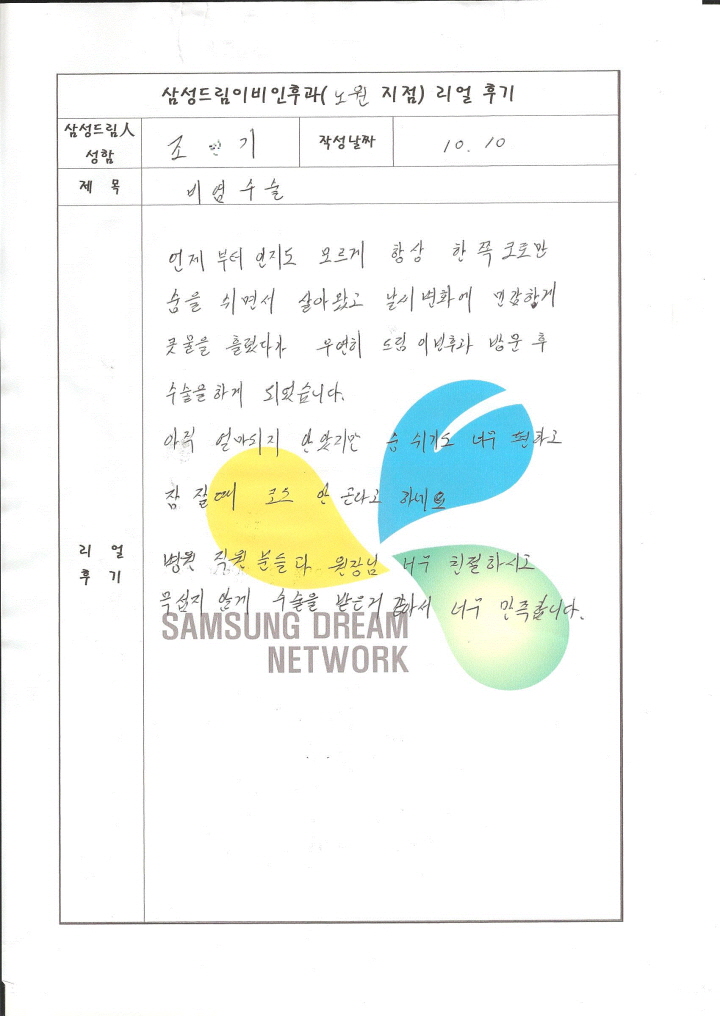 삼성드림이비인후과(노원 지점) 리얼 후기
삼성드림人 성함
조 인기
작성날짜
10. 10
제 목
비염수술
리 얼 후 기
언제 부터 인지도 모르게 항상 한 쪽 코로만
숨을 쉬면서 살아왔고 날씨변화에 민감하게
콧물을 흘렸다가 우연히 드림이빈후과 방문 후
수술을하게 되었습니다.
아직 얼마되지 안았지만 숨 쉬기도 너무 편하고
잠 잘때 코도 안 곤다고 하네요
병원 직원분들과 원장님 너무 친절하시고
무섭지 않게 수술을 받은거 같아서 너무 만족합니다.
SAMSUNG DREAM
NETWORK